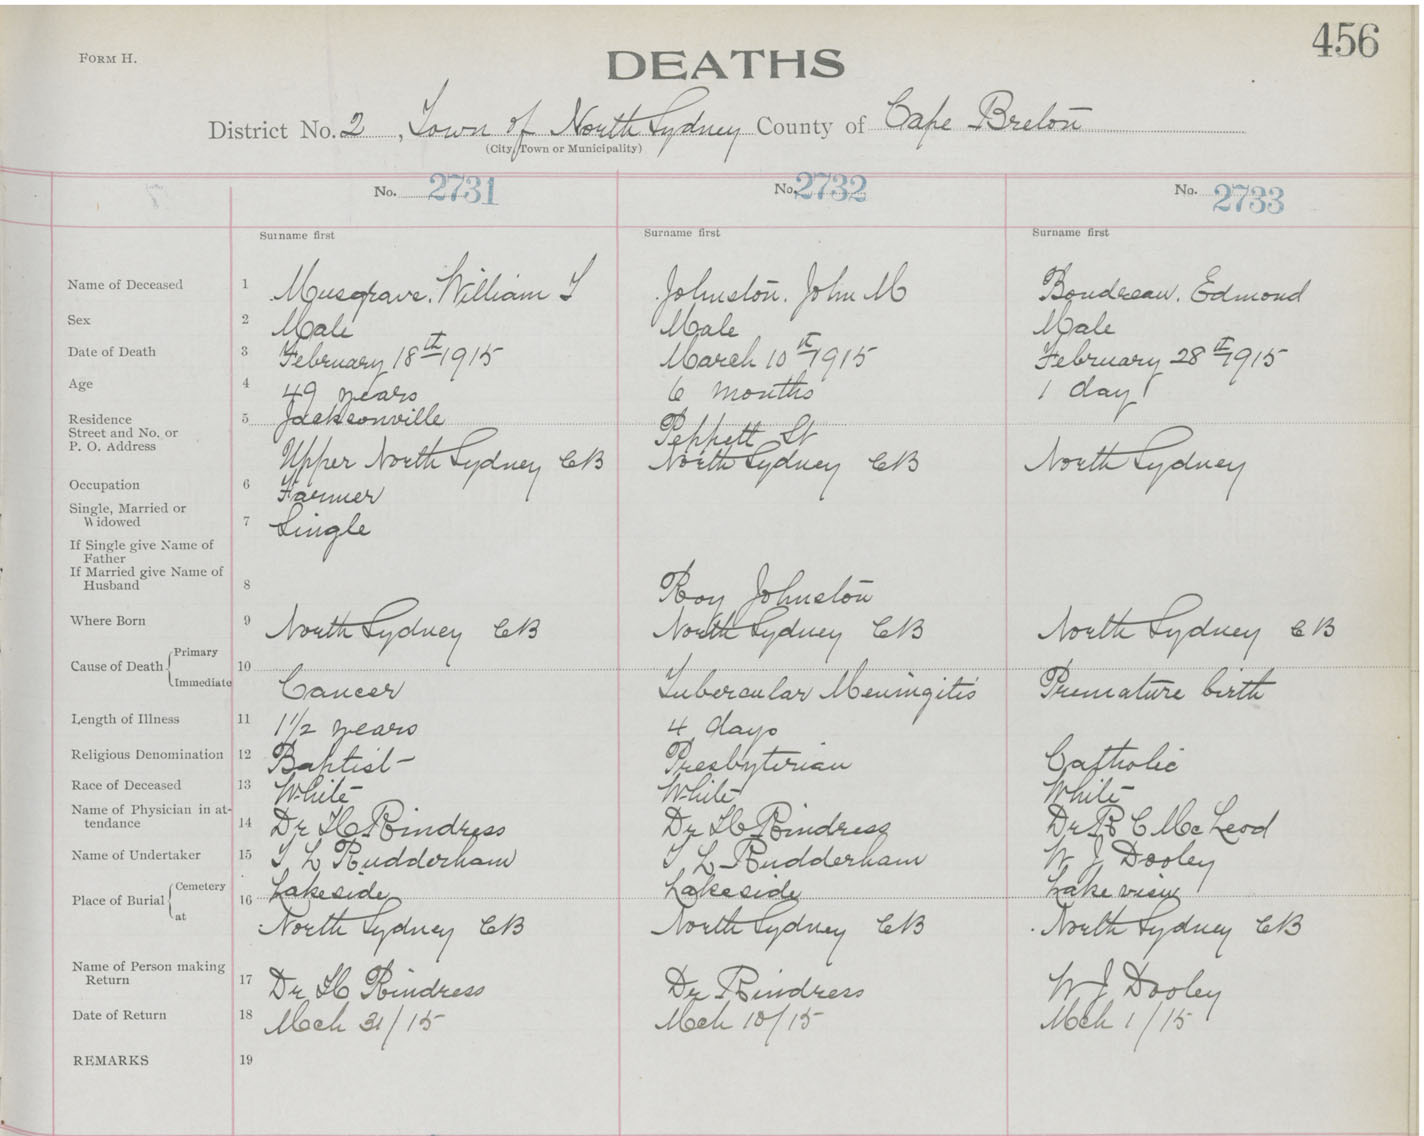 456
FORM H.
DEATHS
District No. 2, Town of North Sydney County of Cape Breton
(City, Town or Municipality)
No. 2731 No. 2732 No. 2733
Surname first Surname first Surname first
Name of Deceased 1 Musgrave. William T Johnston. John M Boudreau. Edmond
Sex 2 Male Male Male
Date of Death 3 February 18th 1915 March 10th 1915 February 28th 1915
Age 4 49 years 6 months 1 day
Residence 5 Jacksonville
Street and No. or Peppett St
P. O. Address Upper North Sydney CB North Sydney CB North Sydney
Occupation 6 Farmer
Single, Married or
Widowed 7 Single
If Single give Name of
Father
If Married give Name of
Husband 8 Roy Johnston
Where Born 9 North Sydney CB North Sydney CB North Sydney CB
Primary
Cause of Death 10
Immediate Cancer Tubercular Meningitis Premature birth
Length of Illness 11 1 1/2 years 4 days
Religious Denomination 12 Baptist Presbyterian Catholic
Race of Deceased 13 White White White
Name of Physician in at-
tendance 14 Dr H Rindress Dr H Rindress Dr R C McLeod
Name of Undertaker 15 T L Rudderham T L Rudderham W J Dooley
Cemetery Lakeside Lakeside Lake view
Place of Burial 16
at North Sydney CB North Sydney CB North Sydney CB
Name of Person making
Return 17 Dr H Rindress Dr Rindress W J Dooley
Date of Return 18 Mch 31/15 Mch 10/15 Mch 1/15
REMARKS 19